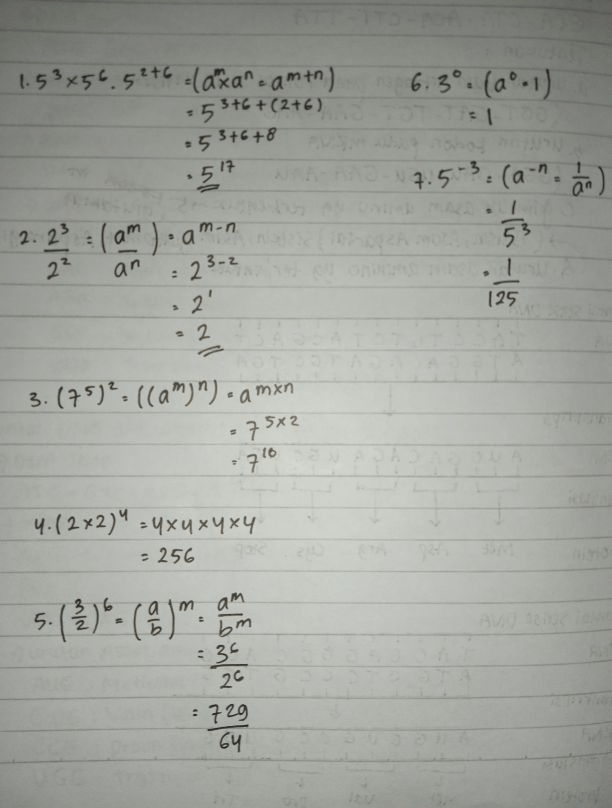 1. 5³ × 5⁶ . 5²⁺⁶ = (aᵐ×aⁿ = aᵐ⁺ⁿ)
= 5³⁺⁶⁺⁽²⁺⁶⁾
= 5³⁺⁶⁺⁸
= 5¹⁷
2. 2³/2² = (aᵐ/aⁿ) = aᵐ⁻ⁿ
= 2³⁻²
= 2¹
= 2
3. (7⁵)² = ((aᵐ)ⁿ) = aᵐˣⁿ
= 7⁵ˣ²
= 7¹⁰
4. (2×2)⁴ = 4×4×4×4
= 256
5. (3/2)⁶ = (a/b)ᵐ = aᵐ/bᵐ
= 3⁶/2⁶
= 729/64
6. 3⁰ = (a⁰ = 1)
= 1
7. 5⁻³ = (a⁻ⁿ = 1/aⁿ)
= 1/5³
= 1/125